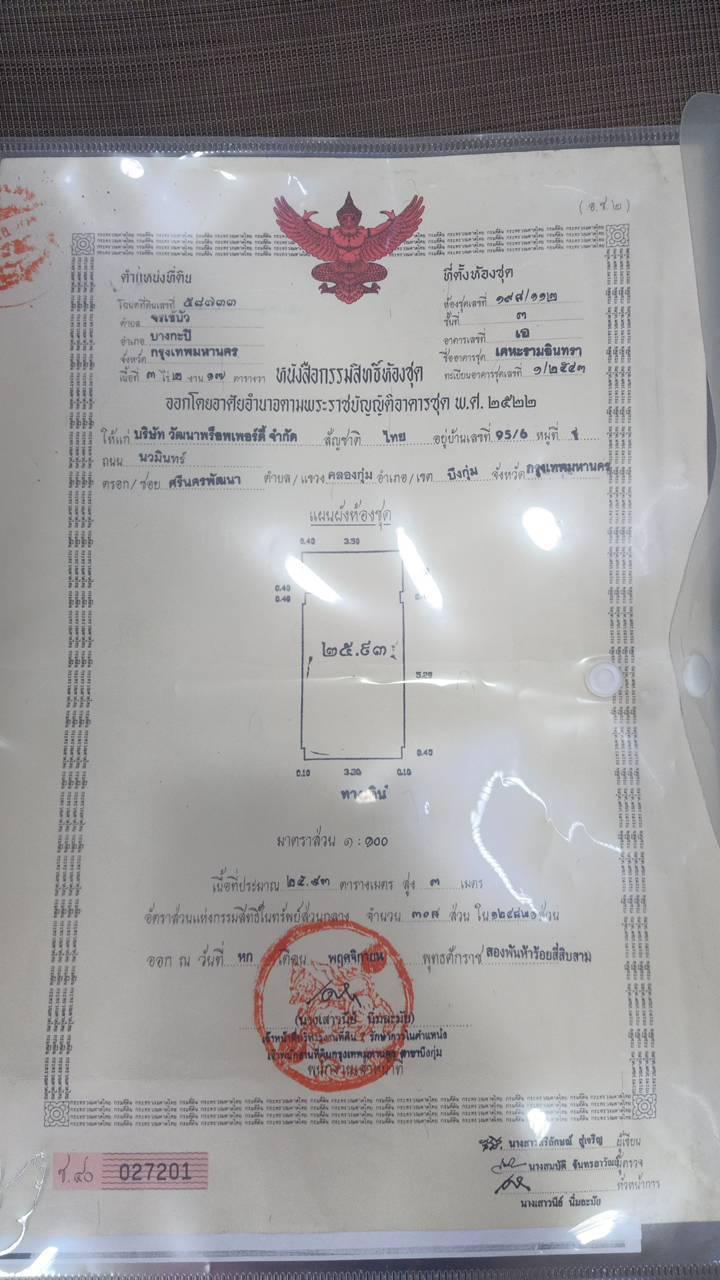 (อ.ช.๒)
ตำแหน่งที่ดิน
ที่ตั้งห้องชุด
โฉนดที่ดินเลขที่ ๕๘๗๓๓
ห้องชุดเลขที่ ๑๙๘/๑๑๒
ตำบล จรเข้บัว
ชั้นที่ ๓
อำเภอ บางกะปิ
อาคารเลขที่ เอ
จังหวัด กรุงเทพมหานคร
ชื่ออาคารชุด เคหะรามอินทรา
เนื้อที่ ๓ ไร่ ๒ งาน ๑๗ ตารางวา
ทะเบียนอาคารชุดเลขที่ ๑/๒๕๔๓
หนังสือกรรมสิทธิ์ห้องชุด
ออกโดยอาศัยอำนาจตามพระราชบัญญัติอาคารชุด พ.ศ. ๒๕๒๒
ให้แก่ บริษัท วัฒนาพร็อพเพอร์ตี้ จำกัด สัญชาติ ไทย อยู่บ้านเลขที่ 95/6 หมู่ที่
ถนน นวมินทร์
ตรอก/ซอย ศรีนครพัฒนา ตำบล/แขวง คลองกุ่ม อำเภอ/เขต บึงกุ่ม จังหวัด กรุงเทพมหานคร
แผนผังห้องชุด
0.40 3.50
0.40
0.40
๒๕.๙๓
5.20
0.40
0.10 3.30 0.10
ทางเดิน
มาตราส่วน ๑ : ๑๐๐
เนื้อที่ประมาณ ๒๕.๙๓ ตารางเมตร สูง ๓ เมตร
อัตราส่วนแห่งกรรมสิทธิ์ในทรัพย์ส่วนกลาง จำนวน ๓๐๘ ส่วน ใน ส่วน
ออก ณ วันที่ หก เดือน พฤศจิกายน พุทธศักราช สองพันห้าร้อยสี่สิบสาม
(นางเสาวนีย์ นิ่มนะมัย)
เจ้าหน้าที่บริหารงานที่ดิน รักษาการในตำแหน่ง
เจ้าพนักงานที่ดินกรุงเทพมหานคร สาขาบึงกุ่ม
พนักงานเจ้าหน้าที่
ผู้เขียน
นางสมบัติ ผู้ตรวจ
หัวหน้าการ
นางเสาวนีย์ นิ่มนะมัย
ช.๔๐ 027201